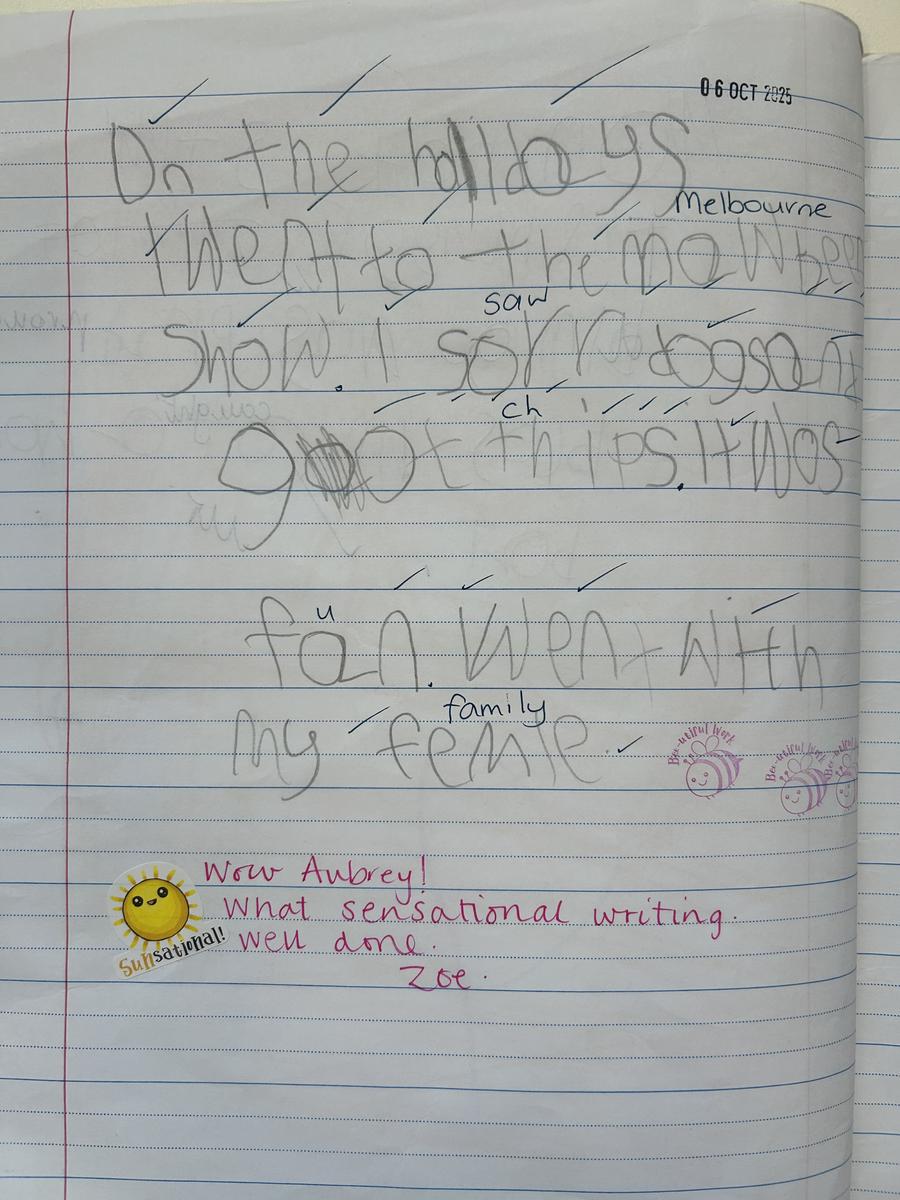 06 OCT 2025
On the holldays
Melbourne
I Went to the mowbeen
saw
Show. I sorr dogs and
ch
got thips. It Wos
u
fan. Went with
family
my femle.
Bee-utiful Work
Bee-utiful Work
Wow Aubrey!
What sensational writing.
Well done.
Zoe.
Sunsational!